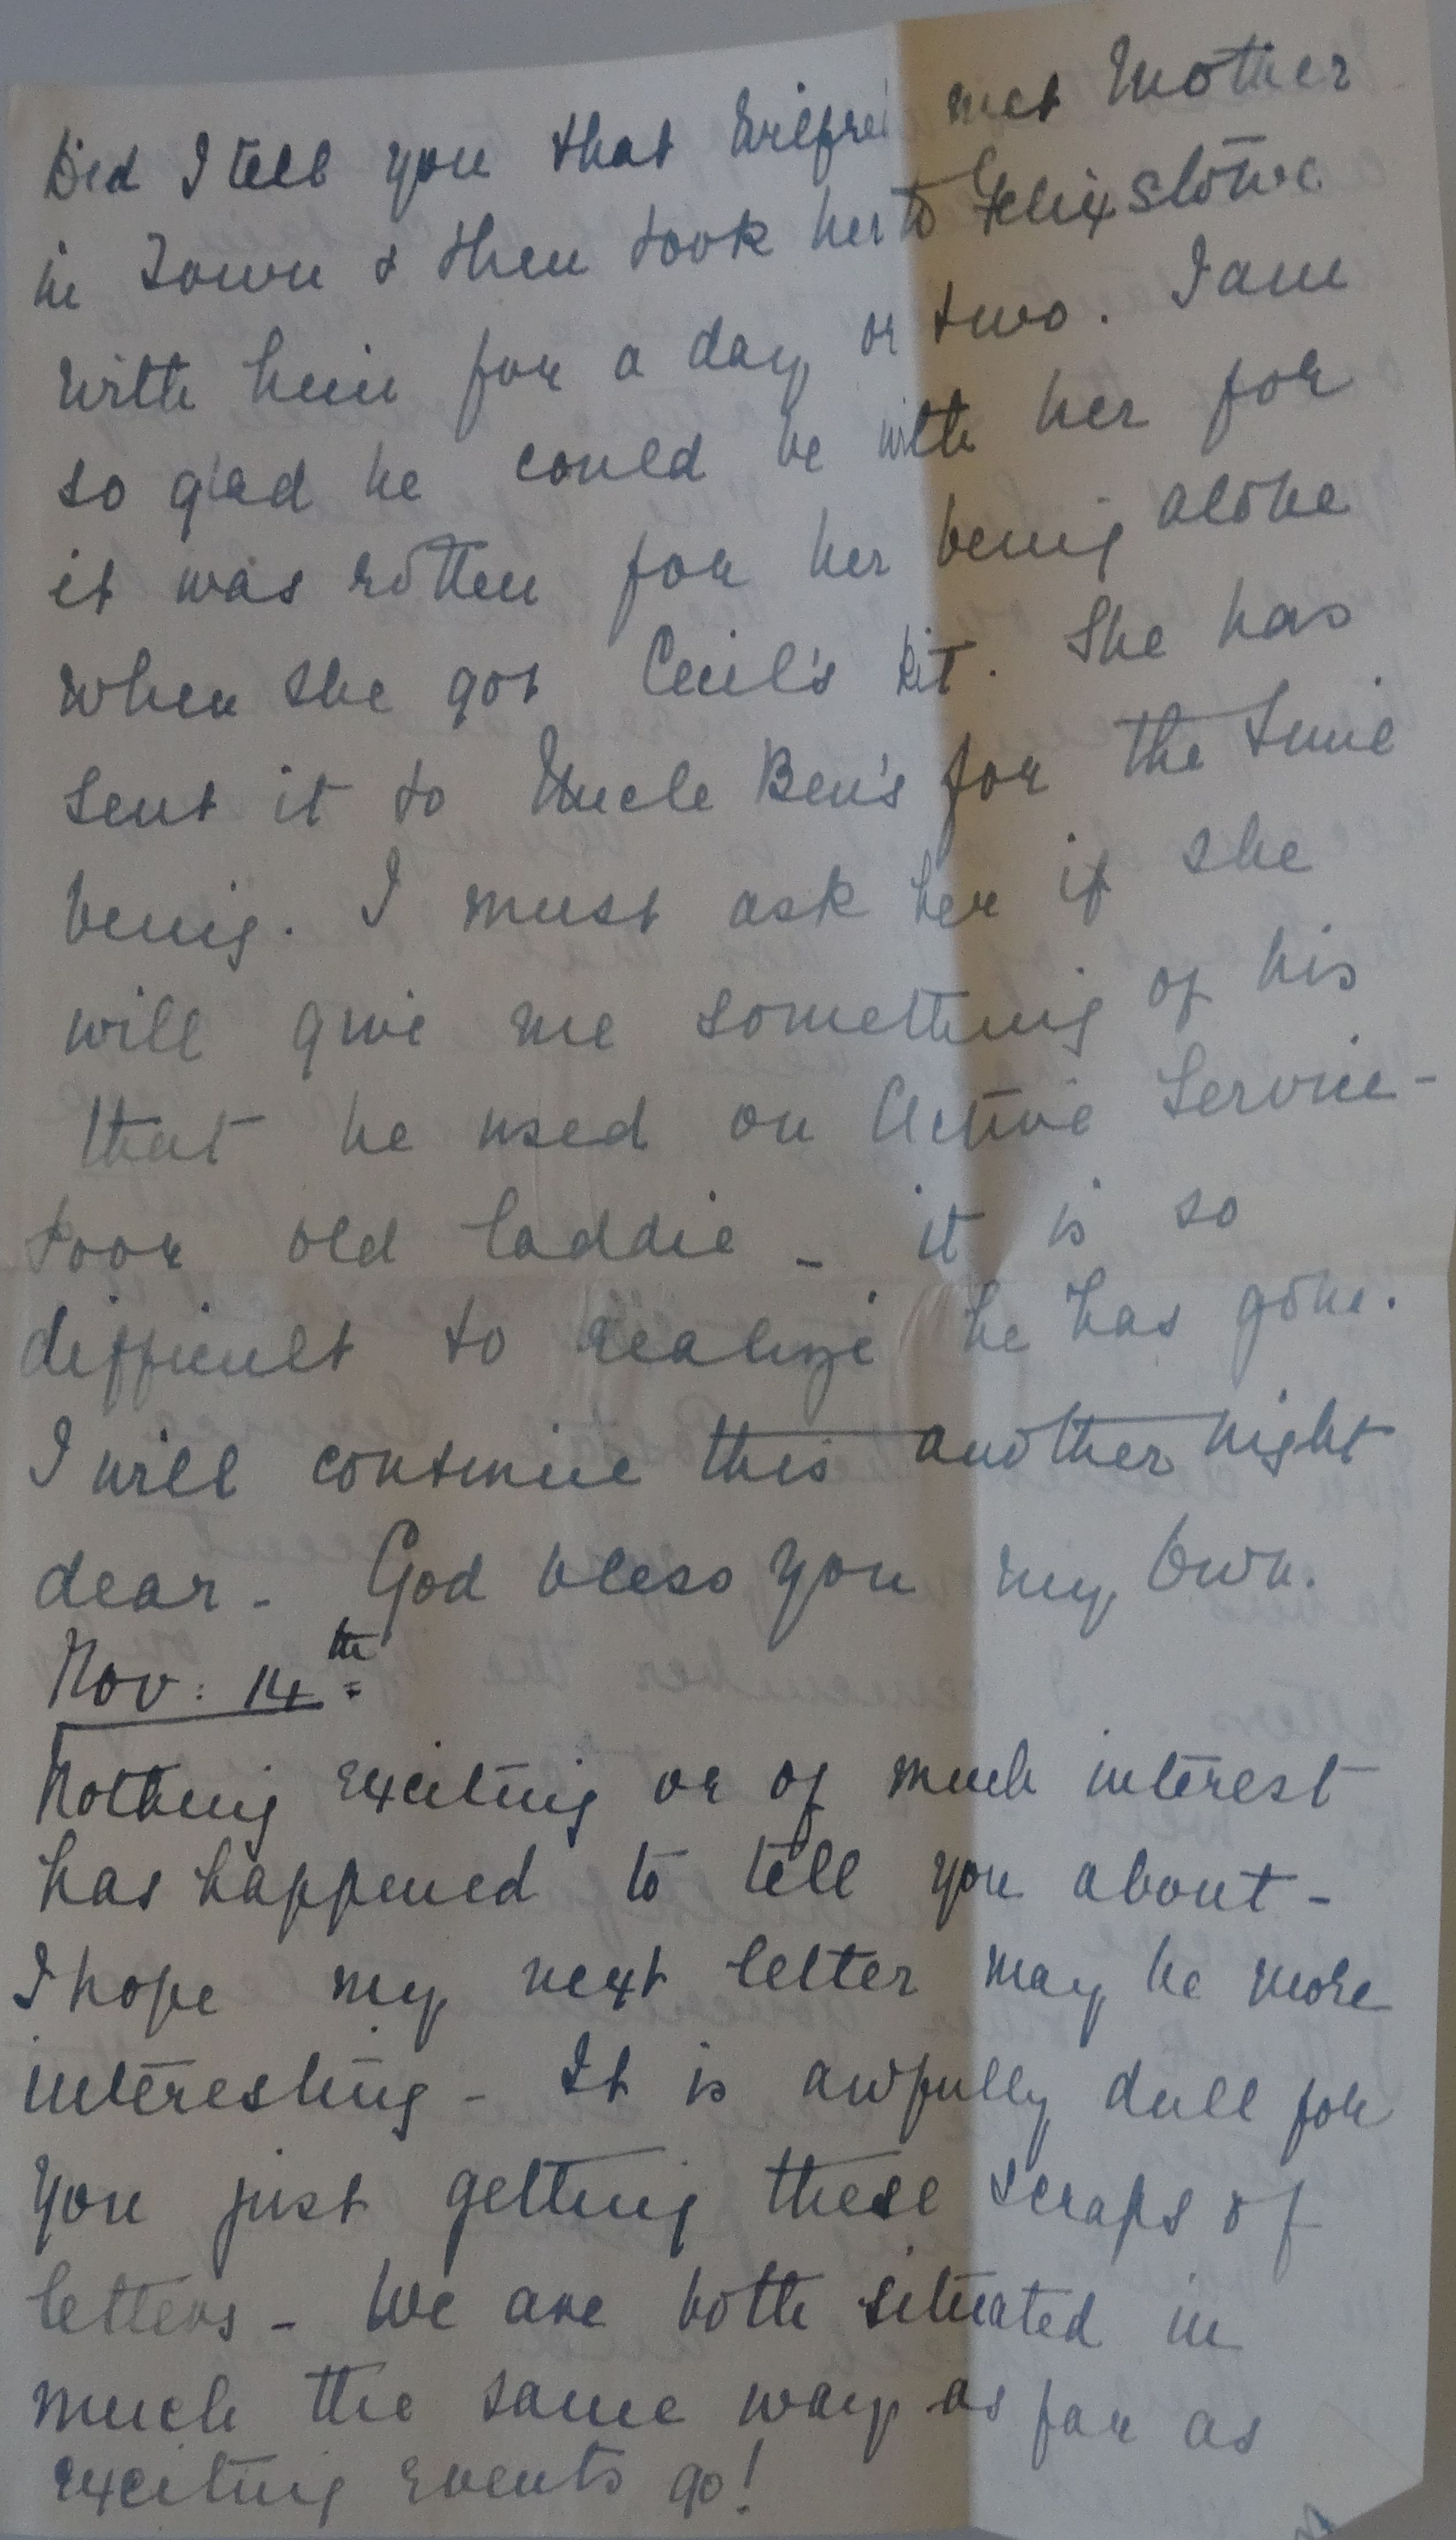 Did I tell you that Wilfred met Mother
in Town & then took her to Felixstowe
with him for a day or two. I am
so glad he could be with her for
it was rotten for her being alone
when she got Cecil's kit. She has
sent it to Uncle Ben's for the time
being. I must ask her if she
will give me something of his
that he used on Active Service -
Poor old laddie - it is so
difficult to realize he has gone.
I will continue this another night
dear - God bless you my own.
Nov: 14th
Nothing exciting or of much interest
has happened to tell you about -
I hope my next letter may be more
interesting - It is awfully dull for
you just getting these scraps of
letters - We are both situated in
much the same way as far as
exciting events go!